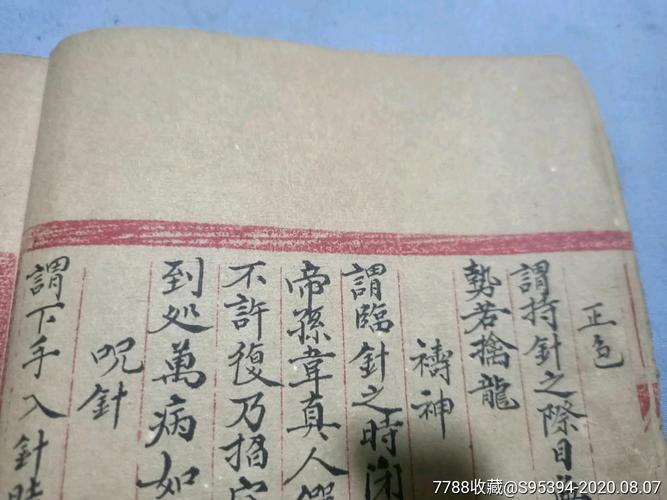 正色
謂持針之際目
勢若擒龍
禱神
謂臨針之時閉
帝孫韋真人
不許復乃掐
到处萬病如
呪針
謂下手入針時
7788收藏@S95394-2020.08.07